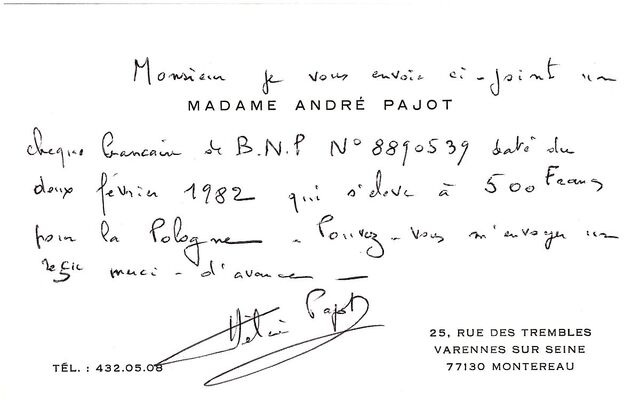 Monsieur je vous envoie ci-joint un
MADAME ANDRÉ PAJOT
chèque bancaire de B.N.P N° 8890539 daté du
deux février 1982 qui s'eleve à 500 Francs
pour la Pologne - Pouvez-vous m'envoyer un
merci - d'avance -
Pajot
25, RUE DES TREMBLES
VARENNES SUR SEINE
TÉL. : 432.05.08
77130 MONTEREAU